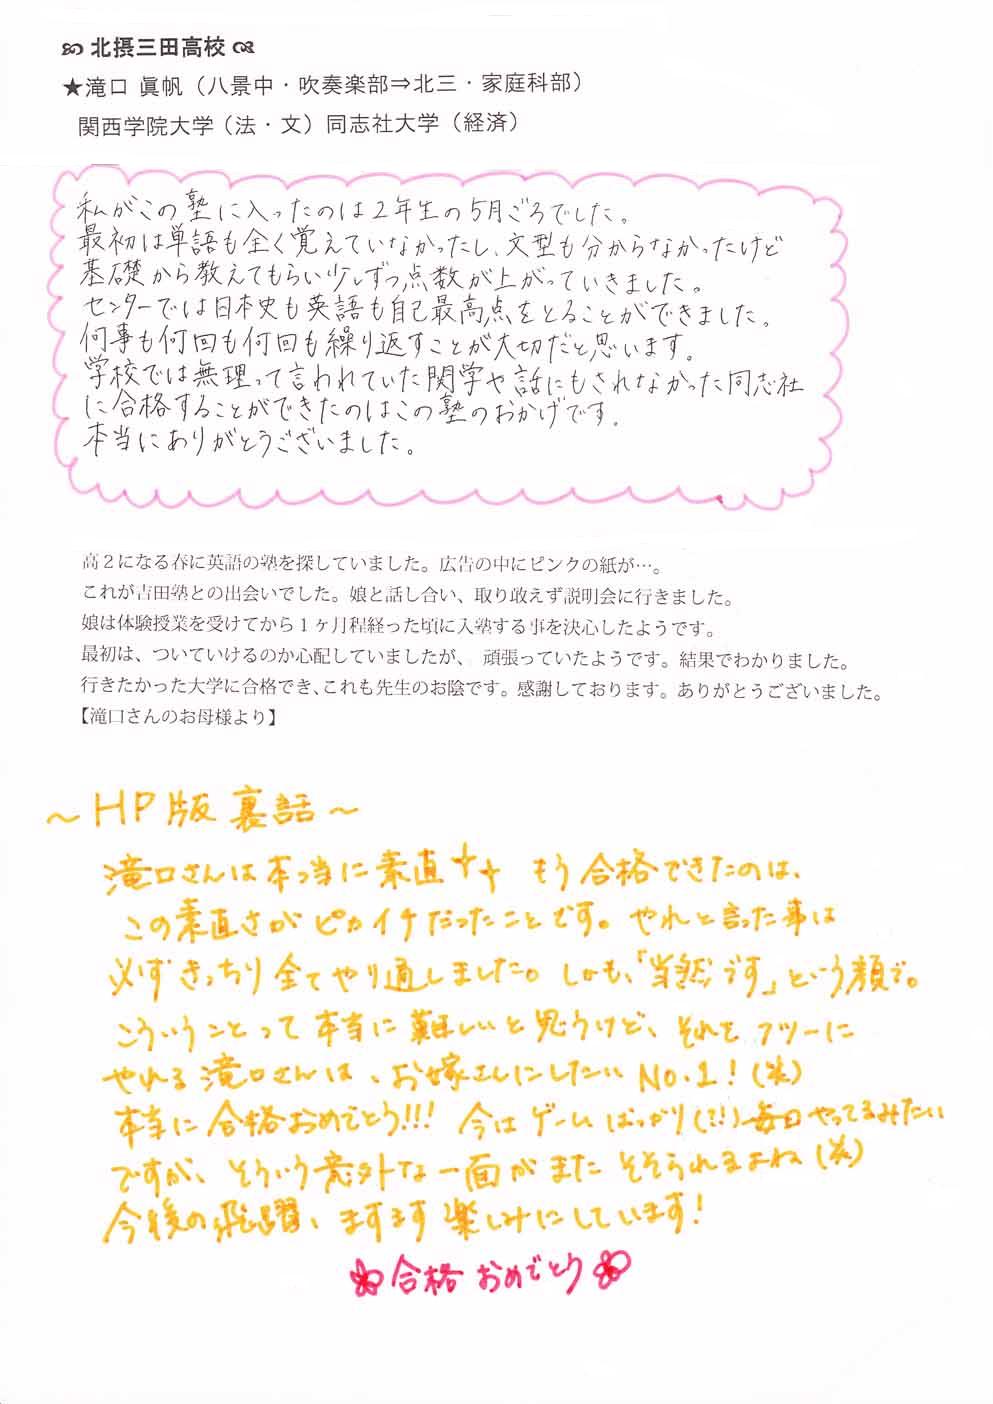 北摂三田高校
★滝口 眞帆（八景中・吹奏楽部⇒北三・家庭科部）
関西学院大学（法・文）同志社大学（経済）
私がこの塾に入ったのは2年生の5月ごろでした。
最初は単語も全く覚えていなかったし、文型も分からなかったけど
基礎から教えてもらい少しずつ点数が上がっていきました。
センターでは日本史も英語も自己最高点をとることができました。
何事も何回も何回も繰り返すことが大切だと思います。
学校では無理って言われていた関学や話にもされなかった同志社
に合格することができたのはこの塾のおかげです。
本当にありがとうございました。
高２になる春に英語の塾を探していました。広告の中にピンクの紙が…。
これが吉田塾との出会いでした。娘と話し合い、取り敢えず説明会に行きました。
娘は体験授業を受けてから１ヶ月程経った頃に入塾する事を決心したようです。
最初は、ついていけるのか心配していましたが、 頑張っていたようです。結果でわかりました。
行きたかった大学に合格でき、これも先生のお陰です。感謝しております。ありがとうございました。
【滝口さんのお母様より】
～HP版 裏話～
滝口さんは本当に素直 もう合格できたのは、
この素直さがピカイチだったことです。やれと言った事は
必ずきっちり全てやり通しました。しかも、「当然です」という顔で。
こういうことって本当に難しいと思うけど、それをフツーに
やれる滝口さんは、お嫁さんにしたいNo.1!(笑)
本当に合格おめでとう!!! 今はゲームばっかり(?!)毎日やってるみたい
ですが、そういう意外な一面がまたそそられるよね(笑)
今後の飛躍、ますます楽しみにしています!
合格おめでとう